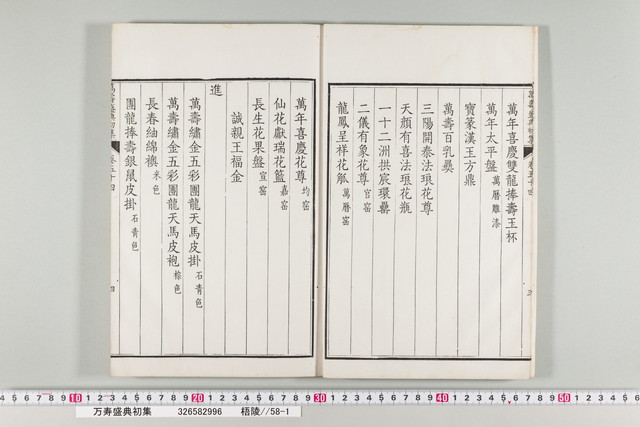 萬年喜慶雙龍捧壽玉杯
萬年太平盤 萬曆雕漆
寶篆漢玉方鼎
萬壽百乳彝
三陽開泰法琅花尊
天顏有喜法琅花瓶
一十二洲拱宸環罍
二儀有象花尊 官窑
龍鳳呈祥花觚 萬曆窑
萬年喜慶花尊 均窑
仙花獻瑞花籃 嘉窑
長生花果盤 宣窑
誠親王福金
進
萬壽繡金五彩團龍天馬皮掛 石青色
萬壽繡金五彩團龍天馬皮袍 棕色
長春紬綿襖 米色
團龍捧壽銀鼠皮掛 石青色
四
万寿盛典初集 326582996 梧陵//58-1
10 20 30 40 50